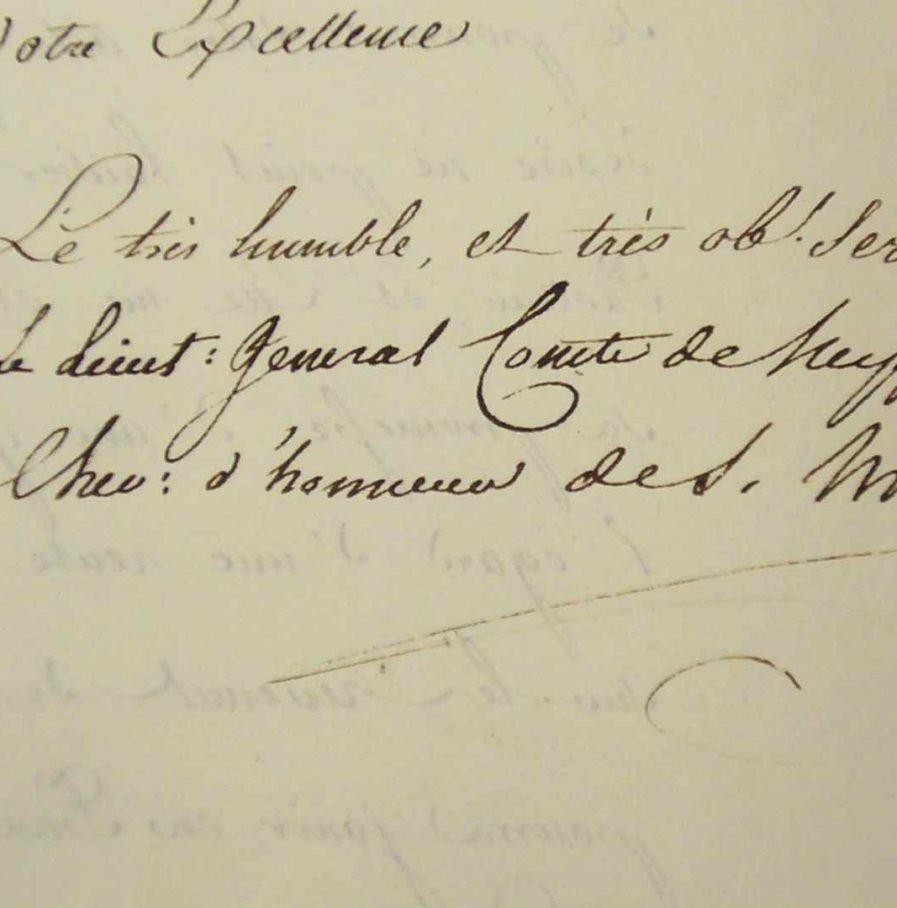 Votre Excellence
Le très humble, et très obt. Ser
Le Lieut: General Comte de Neyp
Chev: d'honneur de S. M